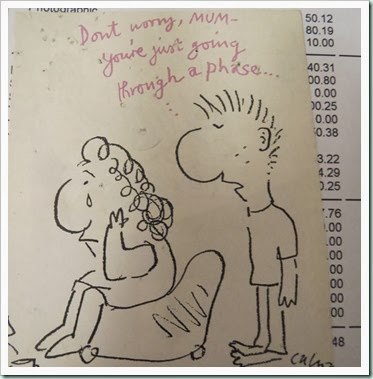 Photographic
50.12
80.19
10.00
40.31
00.80
0.00
00.25
0.00
60.38
3.22
4.29
0.25
7.76
.00
.00
.00
.00
.00
48
Dont worry, MUM-
you're just going
through a phase...